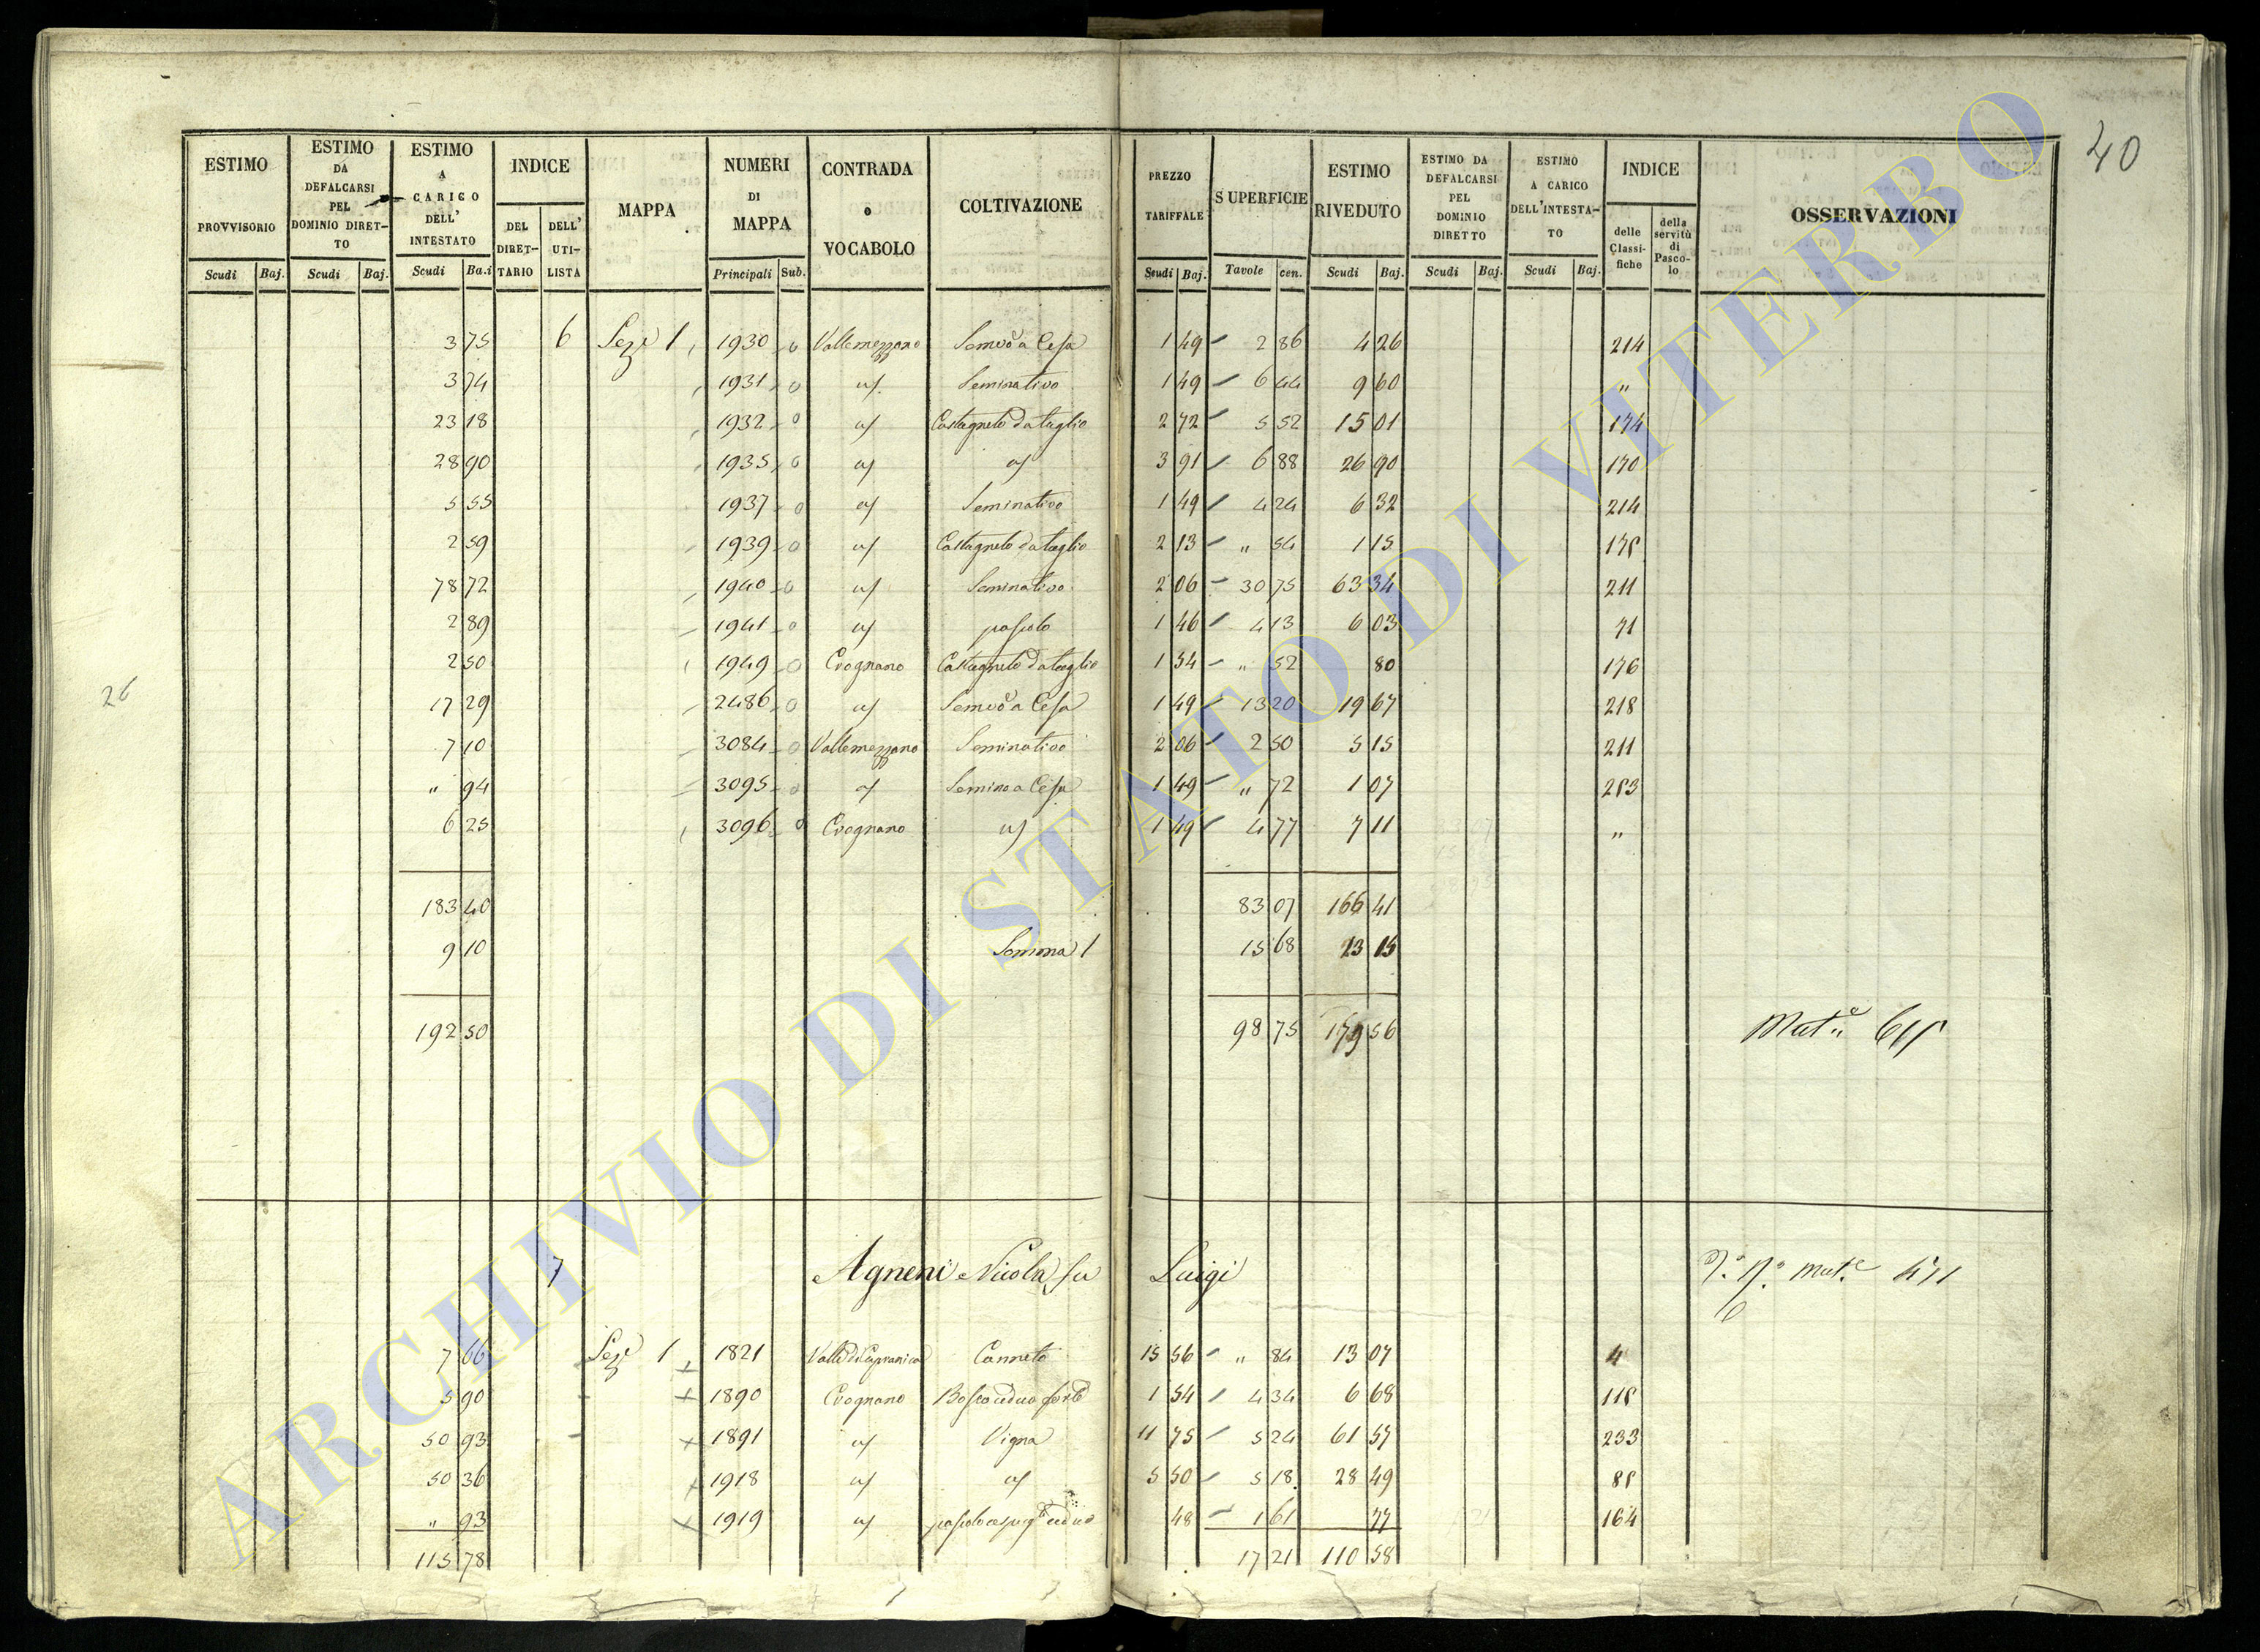 40
ESTIMO PROVVISORIO Scudi Baj.
ESTIMO DA DEFALCARSI PEL DOMINIO DIRET-TO Scudi Baj.
ESTIMO A CARICO DELL' INTESTATO Scudi Ba.i
INDICE DEL DIRET-TARIO DELL' UTI-LISTA
MAPPA
NUMERI DI MAPPA Principali Sub.
CONTRADA o VOCABOLO
COLTIVAZIONE
PREZZO TARIFFALE Scudi Baj.
SUPERFICIE Tavole cen.
ESTIMO RIVEDUTO Scudi Baj.
ESTIMO DA DEFALCARSI PEL DOMINIO DIRETTO Scudi Baj.
ESTIMO A CARICO DELL'INTESTA-TO Scudi Baj.
INDICE delle Classi-fiche della servitù di Pasco-lo
OSSERVAZIONI
3 75 6 Sez.e 1 1930 0 Vallemezzano Semvo a Cesa 1 49 2 86 4 26 214
3 74 1931 0 a/ Seminativo 1 49 6 44 9 60 "
23 18 1932 0 a/ Castagneto da taglio 2 72 5 52 15 01 174
28 90 1935 0 a/ a/ 3 91 6 88 26 90 170
5 55 1937 0 a/ Seminativo 1 49 4 24 6 32 214
2 59 1939 0 a/ Castagneto da taglio 2 13 " 54 1 15 175
78 72 1940 0 a/ Seminativo 2 06 30 75 63 34 211
2 89 1941 0 a/ pascolo 1 46 4 13 6 03 71
2 50 1949 0 Crognano Castagneto da taglio 1 54 " 52 80 176
26
17 29 2486 0 a/ Semvo a Cesa 1 49 13 20 19 67 218
7 10 3084 0 Vallemezzano Seminativo 2 06 2 50 5 15 211
" 94 3095 0 a/ Semino a Cesa 1 49 " 72 1 07 213
6 25 3096 0 Crognano a/ 1 49 4 77 7 11 "
183 40 83 07 166 41
9 10 Somma 1 15 68 13 15
192 50 98 75 179 56 Mat.e
7 Agneni Nicola fu Luigi
7 66 Sez.e 1 1821 Valle di Capranica Canneto 15 56 " 84 13 07 4
5 90 1890 Crognano Bosco ceduo forte 1 54 4 34 6 68 115
50 93 1891 a/ Vigna 11 75 5 24 61 57 233
50 36 1918 a/ a/ 5 50 5 18 28 49 85
" 93 1919 a/ 48 1 61 77 164
115 78 17 21 110 58
ARCHIVIO DI STATO DI VITERBO